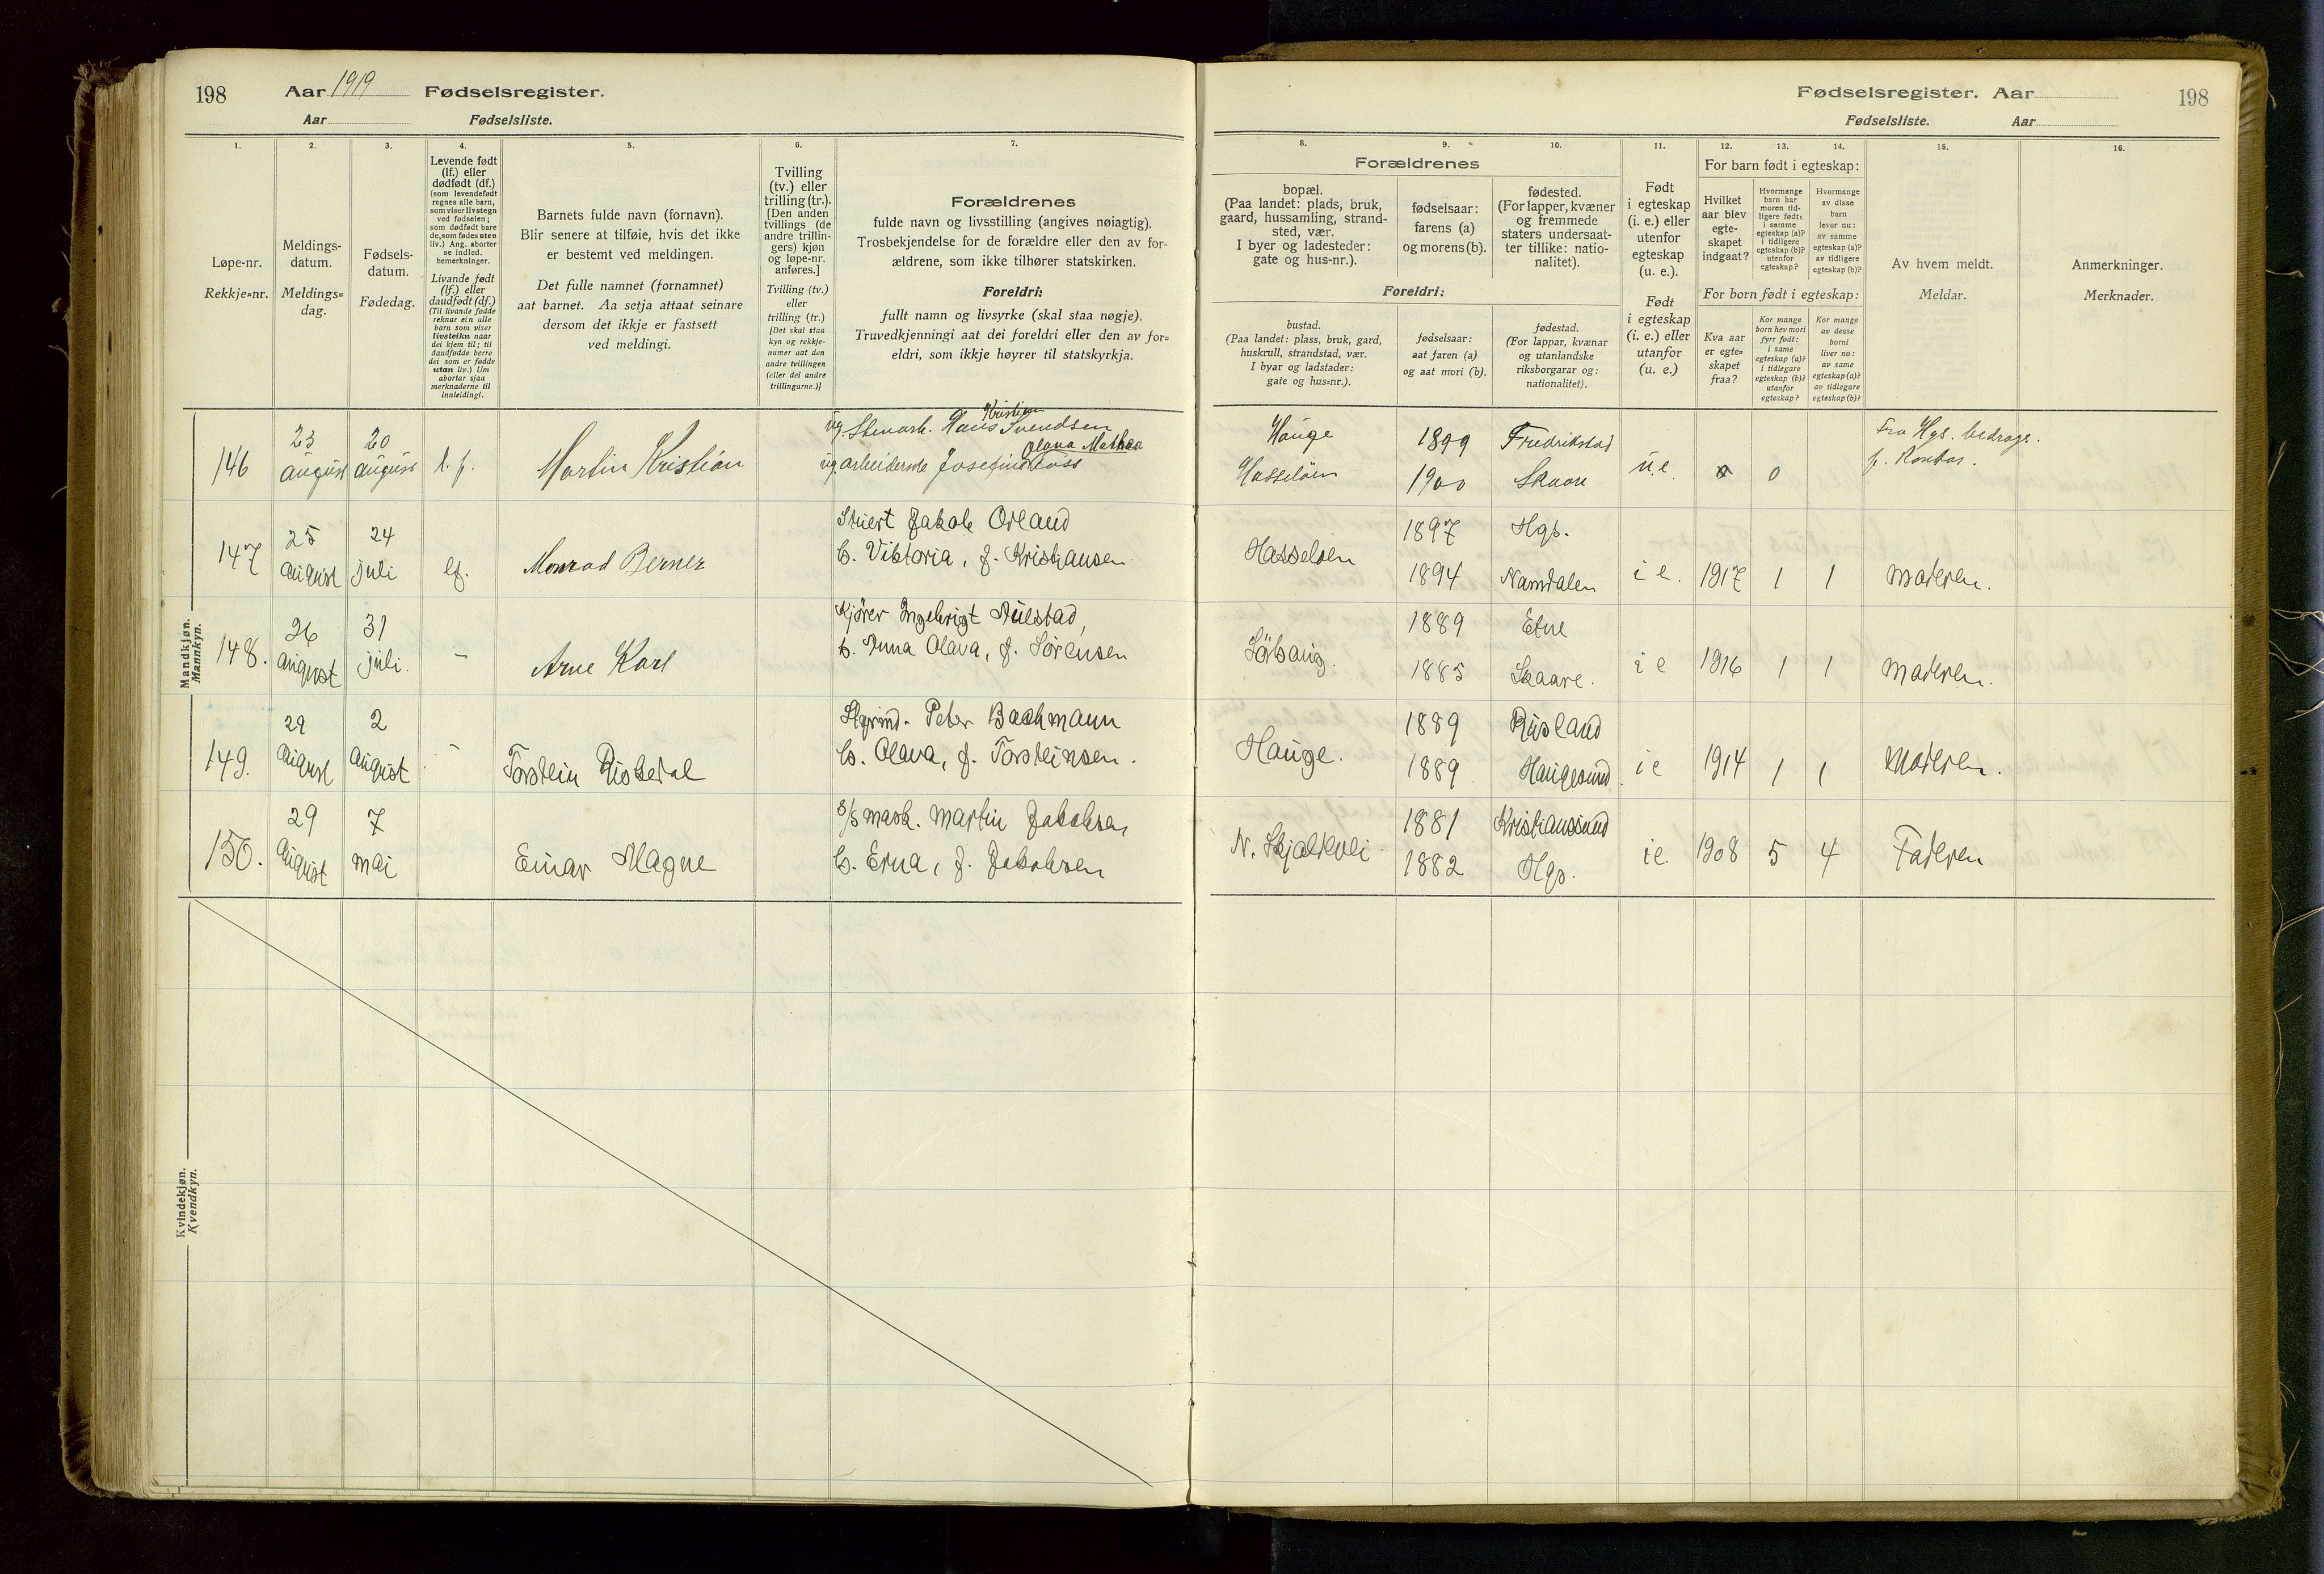 198 Aar 1919 Fødselsregister.
Aar Fødselsliste.
1. 2. 3. 4. 5. 6. 7.
Løpe-nr.
Rekkje=nr.
Meldings-
datum.
Meldings=
dag.
Fødsels-
datum.
Fødedag.
Levende født
(lf.) eller
dødfødt (df.)
(som levendefødt
regnes alle barn,
som viser livstegn
ved fødselen;
som dødfødt bare
de, som fødes uten
liv.) Ang. aborter
se indled.
bemerkninger.
Livande født
(lf.) eller
daudfødt (df.)
(Til livande fødde
reknar ein alle
barn som viser
livsteikn naar
dei kjem til; til
daudfødde berre
dei som er fødde
utan liv.) Um
abortar sjaa
merknaderne til
innleidingi.
Barnets fulde navn (fornavn).
Blir senere at tilføie, hvis det ikke
er bestemt ved meldingen.
Det fulle namnet (fornamnet)
aat barnet. Aa setja attaat seinare
dersom det ikkje er fastsett
ved meldingi.
Tvilling
(tv.) eller
trilling (tr.).
[Den anden
tvillings (de
andre trillin-
gers) kjøn
og løpe-nr.
anføres.]
Tvilling (tv.)
eller
trilling (tr.)
[Det skal staa
kyn og rekkje-
numer aat den
andre tvillingen
(eller dei andre
trillingarne.)]
Forældrenes
fulde navn og livsstilling (angives nøiagtig).
Trosbekjendelse for de forældre eller den av for-
ældrene, som ikke tilhører statskirken.
Foreldri:
fullt namn og livsyrke (skal staa nøgje).
Truvedkjenningi aat dei foreldri eller den av for=
eldri, som ikkje høyrer til statskyrkja.
Mandkjøn.
Mannkyn.
146 23 august 20 august l.f. Martin Kristian
Kristian
ug. Stenarb. Hans Svendsen
Olava Mathea
ug. arbeiderske Josefine
147 25 august 24 juli lf. Monrad Berner
Stuert Jakob Orland
h. Viktoria, f. Kristiansen
148. 26 august 31 juli. - Arne Karl
Kjører Ingebrigt
h. Anna Olava, f. Sørensen
149. 29 august 2 august - Torstein Risdal
Peter Bachmann
h. Olava, f. Torsteinsen.
150. 29 august 7 mai Einar Magne
s/s mask. Martin Jakobsen
h. Erna, f. Jakobsen
Kvindekjøn.
Kvendkyn.
Fødselsregister. Aar 198
Fødselsliste. Aar
8. 9. 10. 11. 12. 13. 14. 15. 16.
Forældrenes
bopæl.
(Paa landet: plads, bruk,
gaard, hussamling, strand-
sted, vær.
I byer og ladesteder:
gate og hus-nr.).
fødselsaar:
farens (a)
og morens (b).
fødested.
(For lapper, kvæner
og fremmede
staters undersaat-
ter tillike: natio-
nalitet).
Foreldri:
bustad.
(Paa landet: plass, bruk, gard,
huskrull, strandstad, vær.
I byar og ladstader:
gate og hus=nr.).
fødselsaar:
aat faren (a)
og aat mori (b).
fødestad.
(For lappar, kvænar
og utanlandske
riksborgarar og:
nationalitet).
Født
i egteskap
(i. e.) eller
utenfor
egteskap
(u. e.).
Født
i egteskap
(i. e.) eller
utanfor
(u. e.)
For barn født i egteskap:
Hvilket
aar blev
egte-
skapet
indgaat?
Hvormange
barn har
moren tid-
ligere født:
i samme
egteskap (a)?
i tidligere
egteskap (b)?
utenfor
egteskap?
Hvormange
av disse
barn
lever nu:
av samme
egteskap (a)?
av tidligere
egteskap (b)?
For born født i egteskap:
Kva aar
er egte=
skapet
fraa?
Kor mange
born hev mori
fyrr født:
i same
egteskap (a)?
i tidlegare
egteskap (b)?
utanfor
egteskap?
Kor mange
av desse
borni
liver no:
av same
egteskap (a)?
av tidlegare
egteskap (b)?
Av hvem meldt.
Meldar.
Anmerkninger.
Merknader.
Hauge 1899 Fredrikstad
Hasseløen 1900 Skaare u.e. 0 Fra Hgs. bidrags.
f. Kontor.
Hasseløen 1897 Hgs.
1894 Namdalen i e. 1917 1 1 moderen.
Sörhaug. 1889 Etne
1885 Skaare. i e 1916 1 1 Moderen.
Hauge. 1889
1889 Haugesund. i e 1914 1 1 Moderen.
N. Skjoldvei 1881 Kristianssund
1882 Hgs. i e. 1908 5 4 Faderen